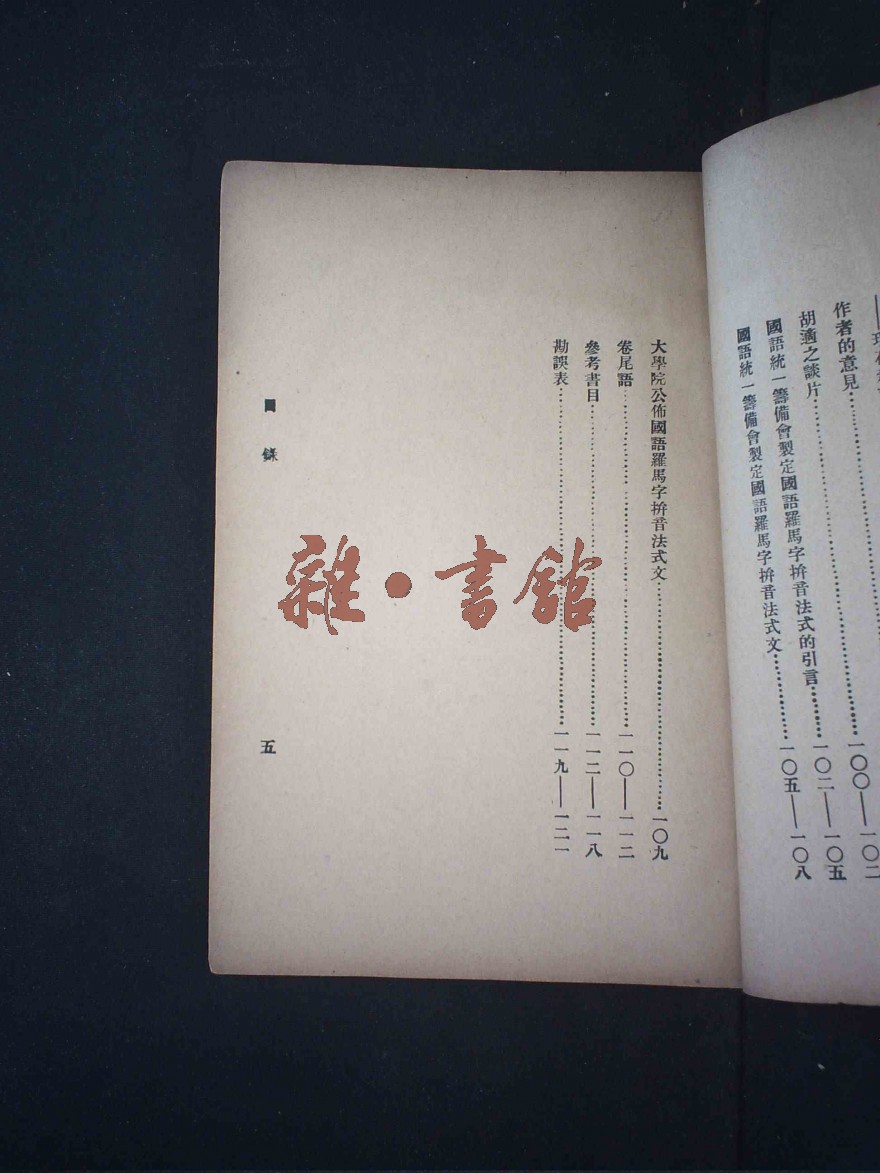 作者的意見……一〇〇——一〇二
胡適之談片……一〇二——一〇五
國語統一籌備會製定國語羅馬字拚音法式的引言……
國語統一籌備會製定國語羅馬字拚音法式文……一〇五——一〇八
大學院公佈國語羅馬字拚音法式文……一〇九
卷尾語……一一〇——一一二
參考書目……一一二——一一八
勘誤表……一一九——一二一
目錄
五
雜·書館